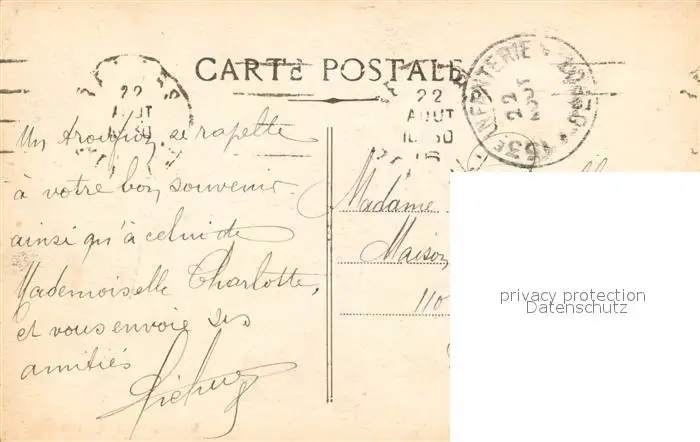 CARTE POSTALE
22
AOUT
22
AOUT
10.50
15
INFANTERIE
22
AOUT
Un se rapelle
à votre bon souvenir
ainsi qu'à celui de
Mademoiselle Charlotte,
et vous envoie ses
amitiés
Madame
Maison
110
privacy protection
Datenschutz